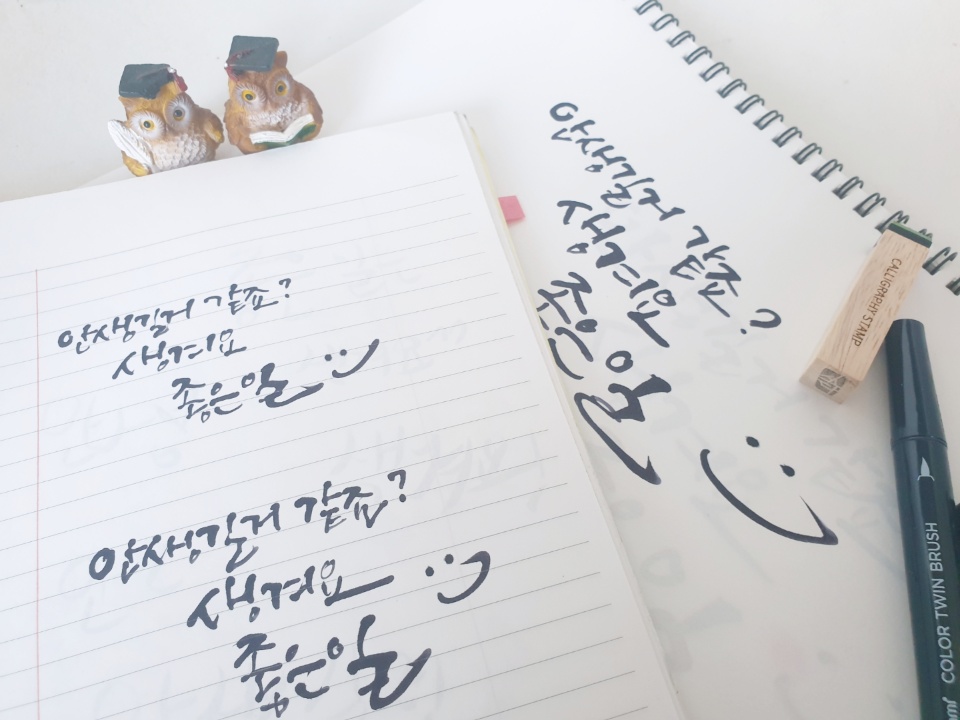 안생길거 같죠?
생겨요
좋은일
안생길거 같죠?
생겨요
좋은일
안생길거 같죠?
생겨요
좋은일
CALLIGRAPHY STAMP
COLOR TWIN BRUSH